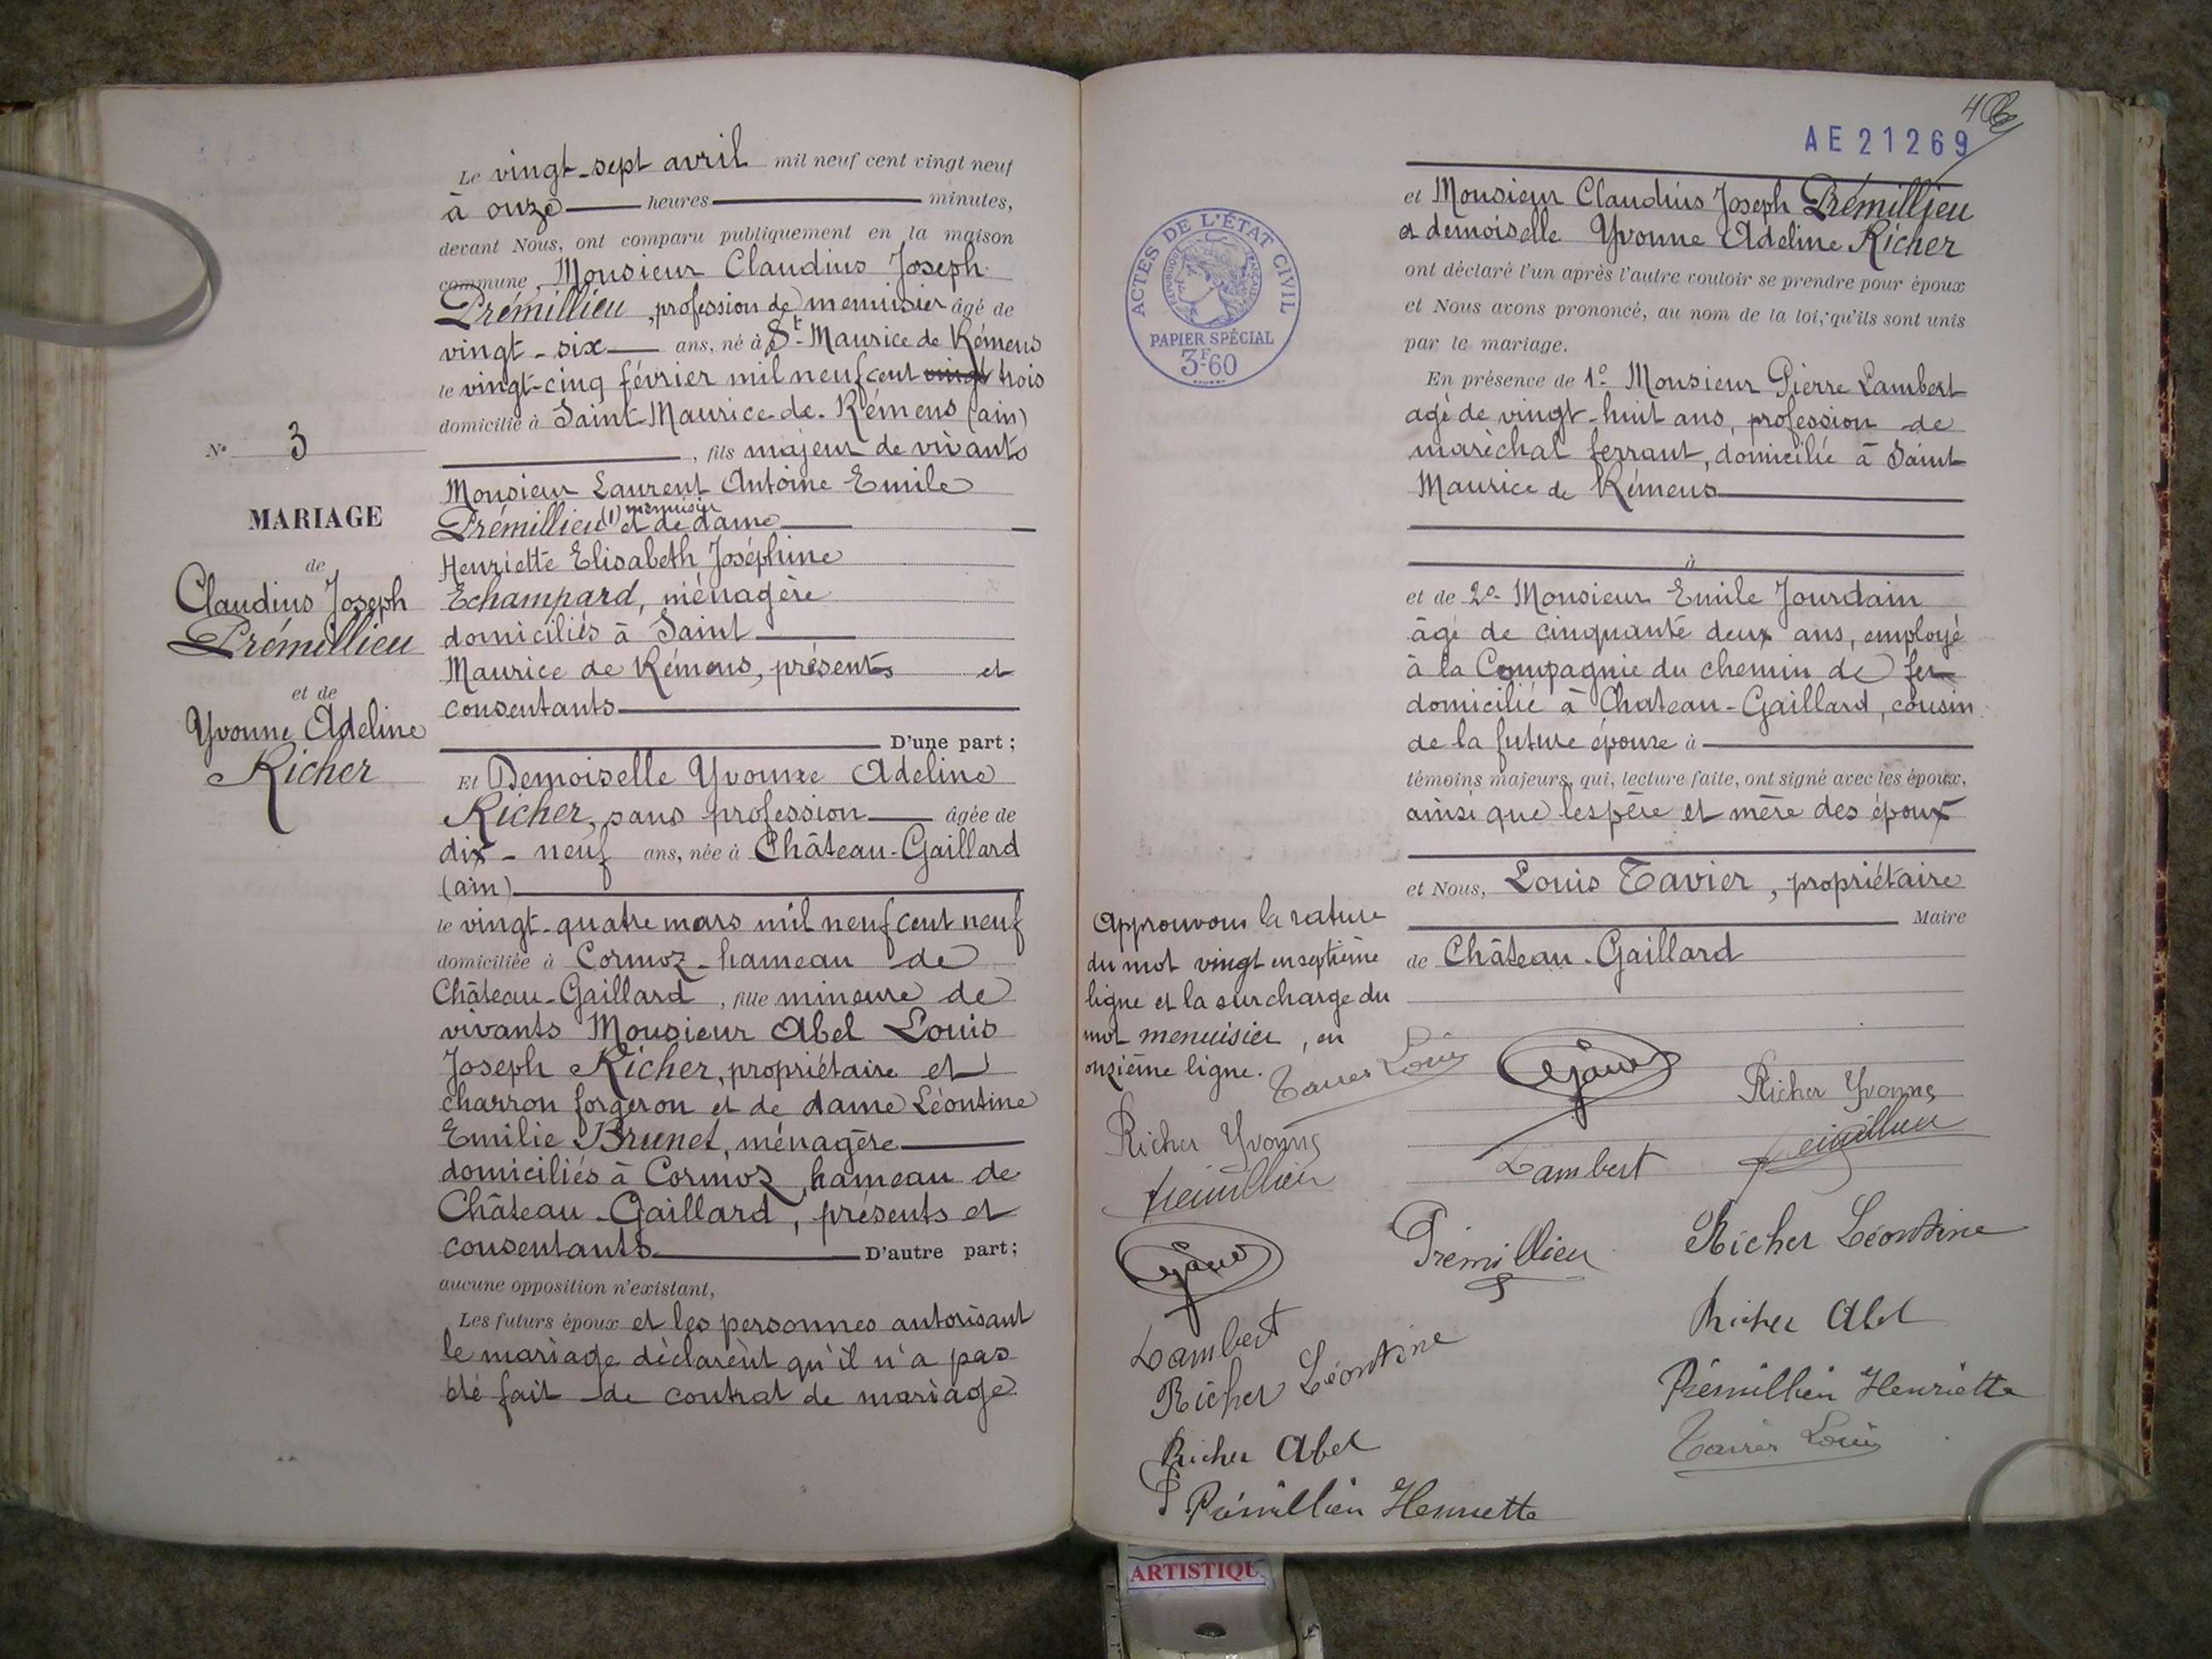 N° 3
MARIAGE
de
Claudius Joseph
Prémillieu
et de
Yvonne Adeline
Richer
Le vingt-sept avril mil neuf cent vingt neuf
à onze heures minutes,
devant Nous, ont comparu publiquement en la maison
commune, Monsieur Claudius Joseph
Prémillieu, profession de menuisier âgé de
vingt-six ans, né à St-Maurice de Rémens
le vingt-cinq février mil neuf cent vingt trois
domicilié à Saint-Maurice-de-Rémens (ain)
, fils majeur de vivants
Monsieur Laurent Antoine Emile
Prémillieu (1) menuisier et de dame
Henriette Elisabeth Joséphine
Echampard, ménagère
domiciliés à Saint
Maurice de Rémens, présents et
consentants
D'une part ;
Et Demoiselle Yvonne Adeline
Richer, sans profession âgée de
dix-neuf ans, née à Château-Gaillard
(ain)
le vingt-quatre mars mil neuf cent neuf
domiciliée à Cormoz-hameau de
Château-Gaillard, fille mineure de
vivants Monsieur Abel Louis
Joseph Richer, propriétaire et
charron forgeron et de dame Léontine
Emilie Brunet, ménagère
domiciliés à Cormoz, hameau de
Château-Gaillard, présents et
consentants D'autre part ;
aucune opposition n'existant,
Les futurs époux et les personnes autorisant
le mariage déclarent qu'il n'a pas
été fait de contrat de mariage
AE 21269
ACTES DE L'ÉTAT CIVIL
PAPIER SPÉCIAL
3F60
et Monsieur Claudius Joseph Prémillieu
et demoiselle Yvonne Adeline Richer
ont déclaré l'un après l'autre vouloir se prendre pour époux
et Nous avons prononcé, au nom de la loi, qu'ils sont unis
par le mariage.
En présence de 1° Monsieur Pierre Lambert
agé de vingt-huit ans, profession de
maréchal ferrant, domicilié à Saint
Maurice de Rémens
à
et de 2° Monsieur Emile Jourdain
âgé de cinquante deux ans, employé
à la Compagnie du chemin de fer
domicilié à Chateau-Gaillard, cousin
de la future épouse à
témoins majeurs, qui, lecture faite, ont signé avec les époux,
ainsi que les père et mère des époux
et Nous, Louis Tavier, propriétaire
Maire
de Château-Gaillard
Approuvons la rature
du mot vingt en septième
ligne et la surcharge du
mot menuisier, en
onzième ligne.
Tavier Louis
Richer Yvonne
Richer Yvonne
Prémillieu
Lambert
Prémillieu
Prémillieu
Richer Léontine
Lambert
Richer Abel
Richer Léontine
Prémillieu Henriette
Richer Abel
Tavier Louis
Prémillieu Henriette
ARTISTIQU